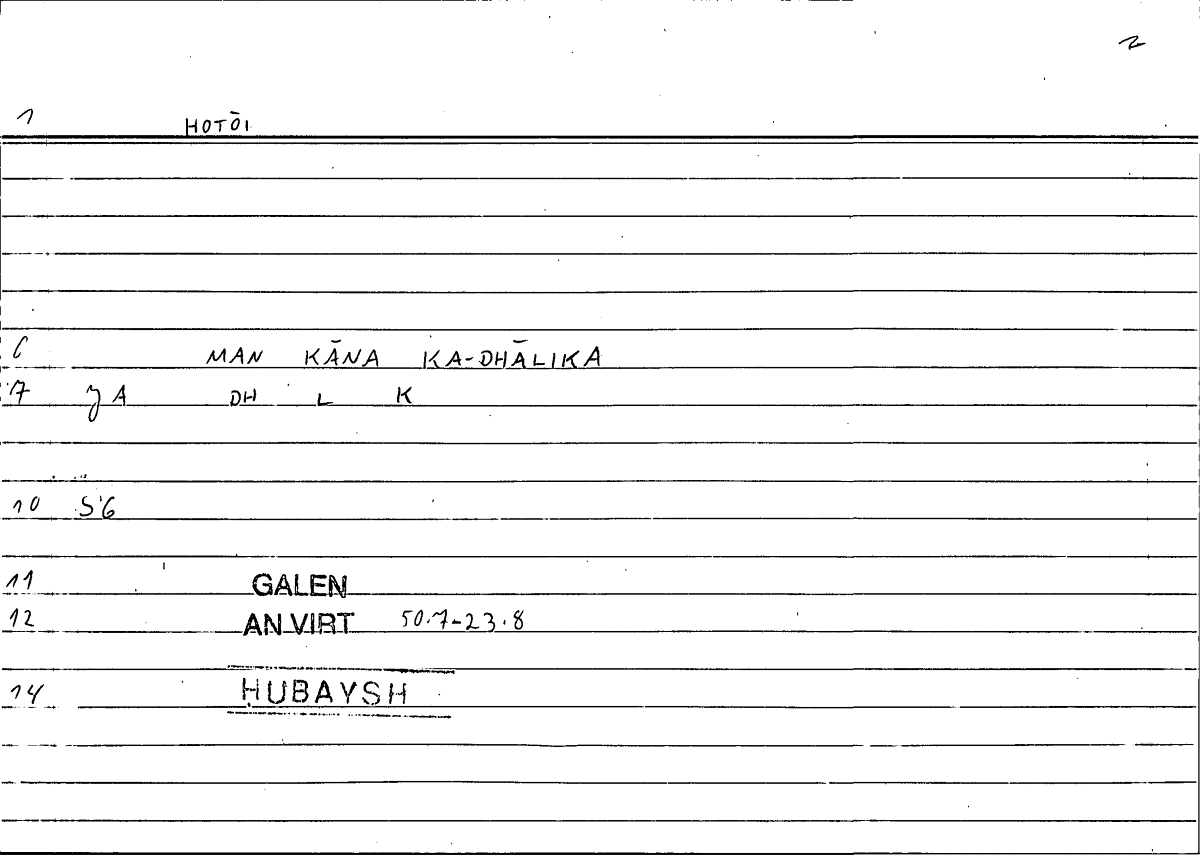 2
1 HOTŌI
6 MAN KĀNA KA-DHĀLIKA
7 JA DH L K
10 S'6
11 GALEN
12 AN VIRT 50.7-23.8
14 ḤUBAYSH